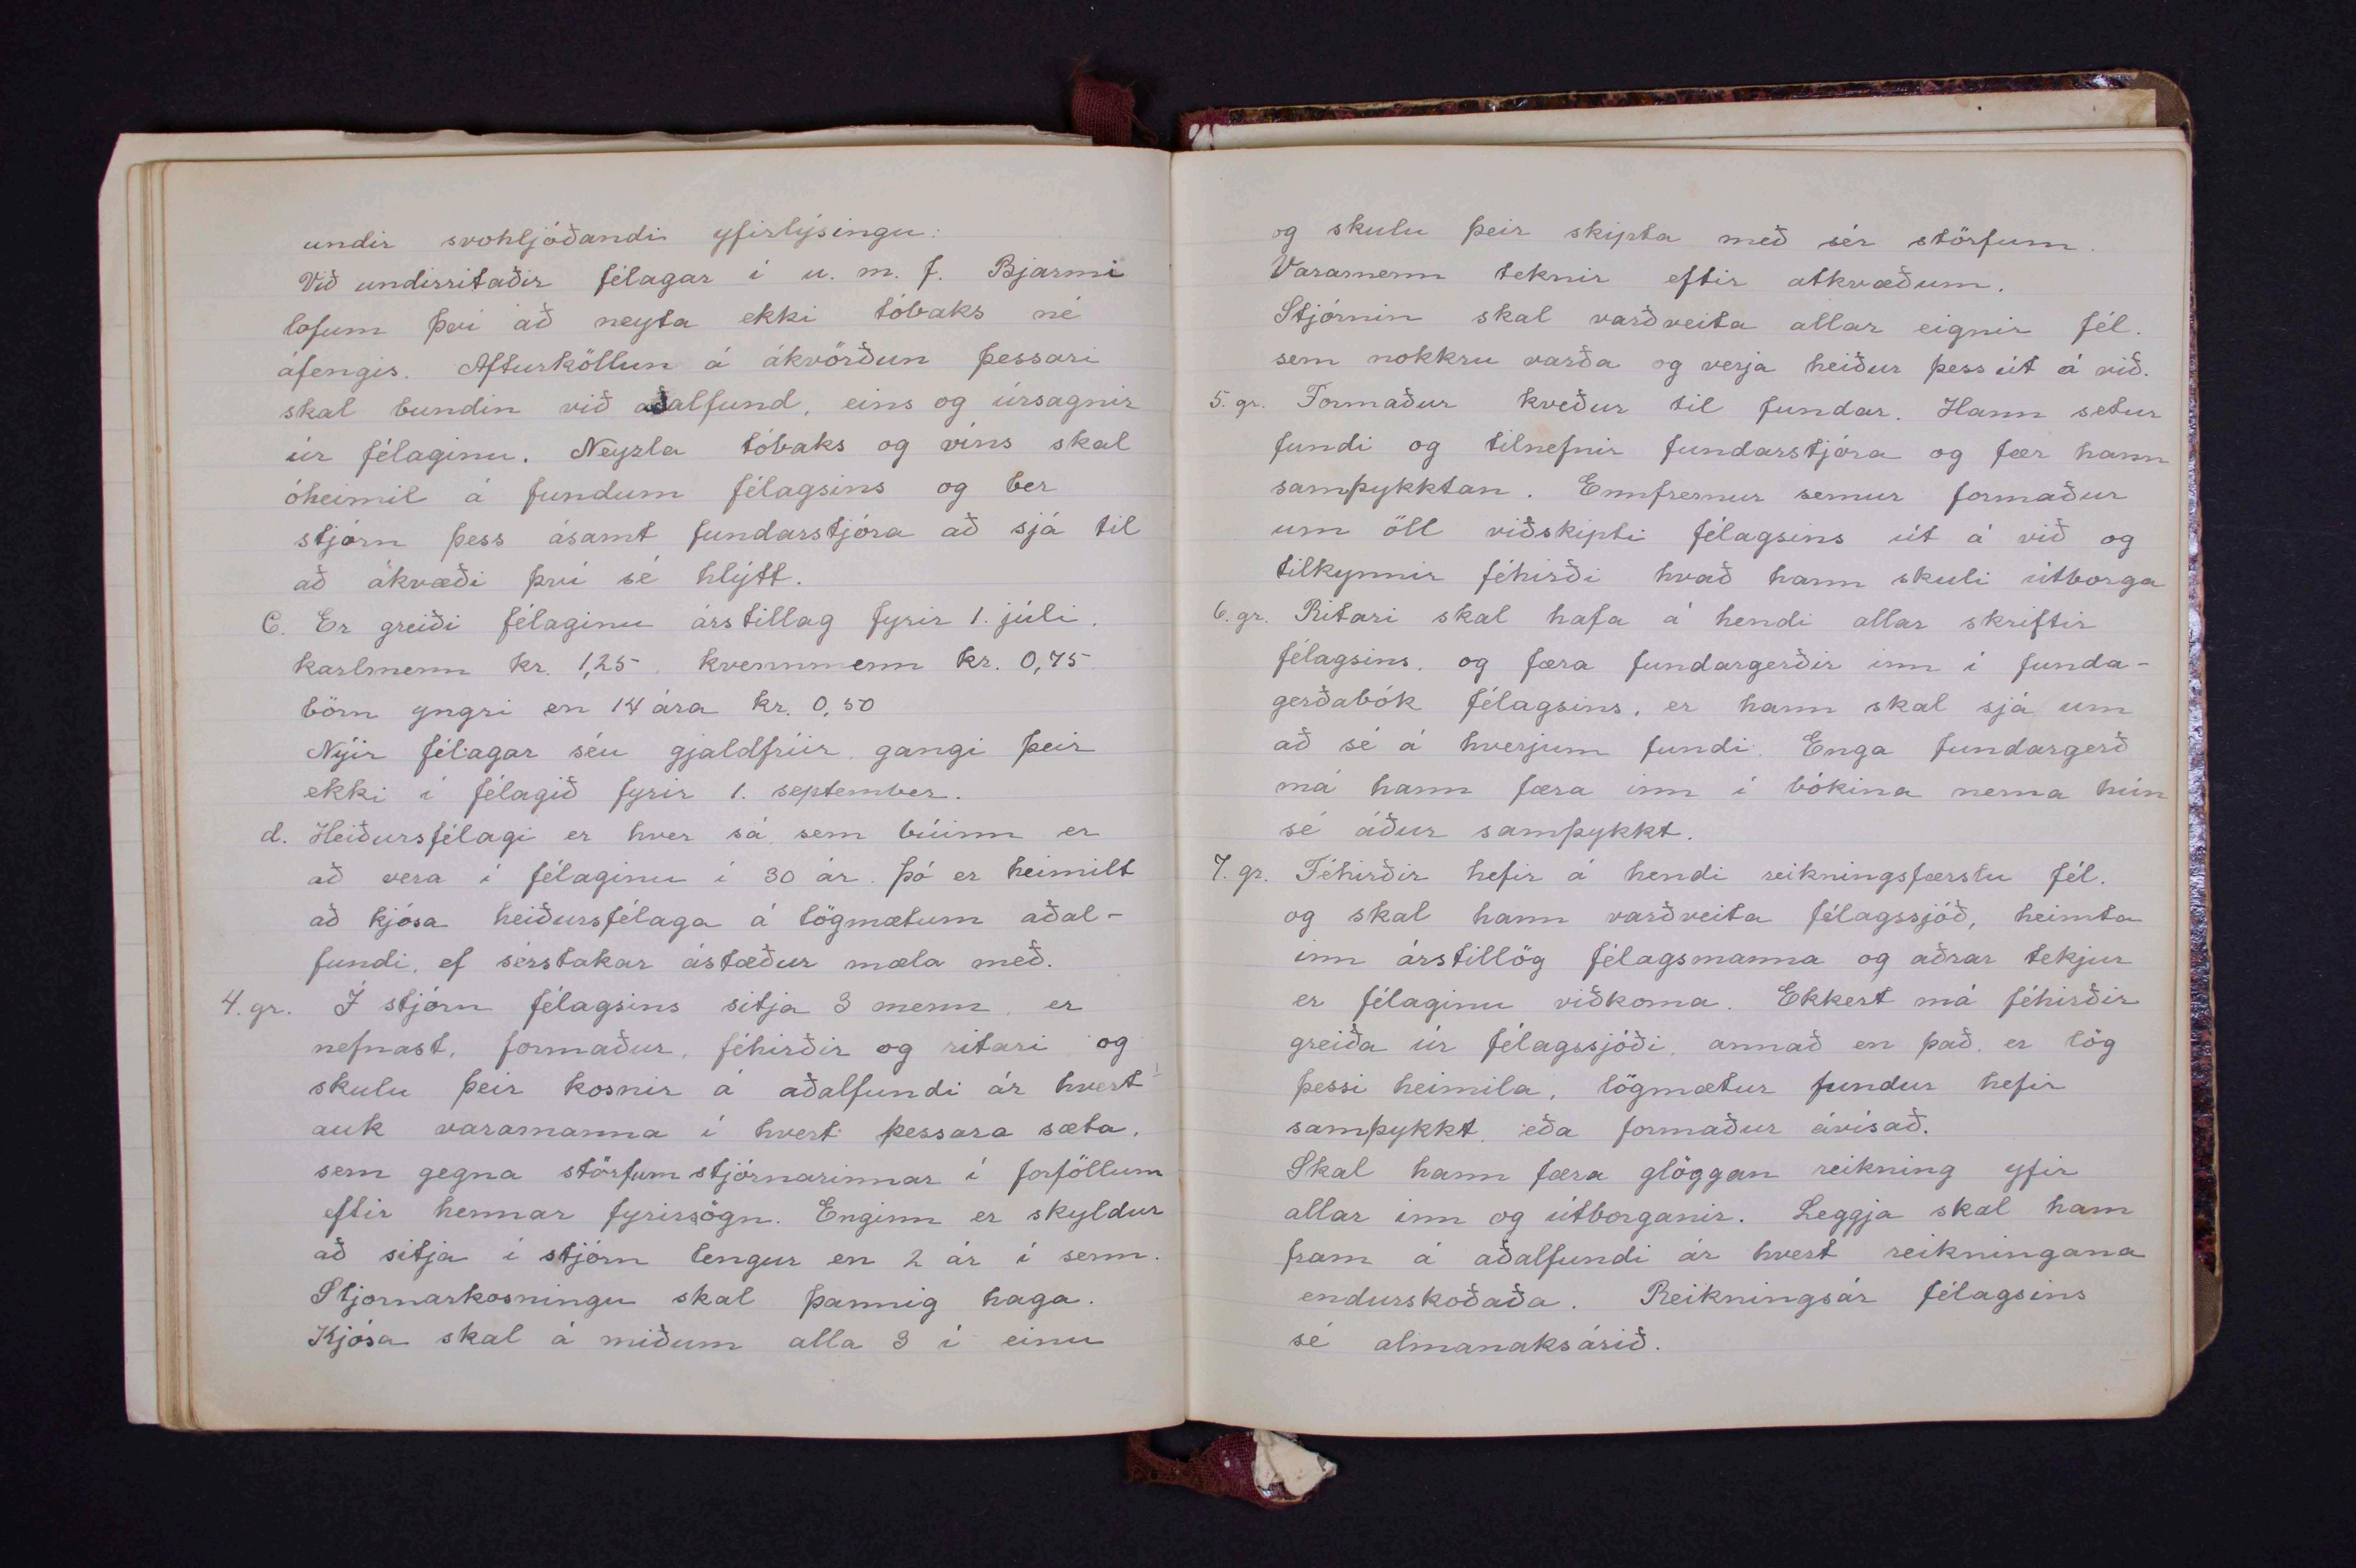 undir svohljóðandi yfirlýsingu:
Við undirritaðir félagar í u. m. f. Bjarmi
lofum því að neyta ekki tóbaks né
áfengis. Afturköllun á ákvörðun þessari
skal bundin við aðalfund, eins og úrsagnir
úr félaginu. Neyzla tóbaks og víns skal
óheimil á fundum félagsins og ber
stjórn þess ásamt fundarstjóra að sjá til
að ákvæði því sé hlýtt.
C. Er greiði félaginu árstillag fyrir 1. júli.
karlmenn kr. 1,25. kvennmenn kr. 0,75
börn yngri en 14 ára kr. 0,50
Nýir félagar séu gjaldfríir, gangi þeir
ekki í félagið fyrir 1. september.
d. Heiðursfélagi er hver sá sem búinn er
að vera í félaginu í 30 ár. Þó er heimilt
að kjósa heiðursfélaga á lögmætum aðal-
fundi, ef sérstakar ástæður mæla með.
4. gr. Í stjórn félagsins sitja 3 menn, er
nefnast, formaður, féhirðir og ritari og
skulu þeir kosnir á aðalfundi ár hvert
auk varamanna í hvert þessara sæta,
sem gegna störfum stjórnarinnar í forföllum
eftir hennar fyrirsögn. Enginn er skyldur
að sitja í stjórn lengur en 2 ár í senn.
Stjornarkosningu skal þannig haga.
Kjósa skal á miðum alla 3 í einu
og skulu þeir skipta með sér störfum.
Varamenn teknir eftir atkvæðum.
Stjórnin skal varðveita allar eignir fél.
sem nokkru varða og verja heiður þess út á við.
5. gr. Formaður kveður til fundar. Hann setur
fundi og tilnefnir fundarstjóra og fær hann
samþykktan. Ennfremur semur formaður
um öll viðskipti félagsins út á við og
tilkynnir féhirði hvað hann skuli útborga
6. gr. Ritari skal hafa á hendi allar skriftir
félagsins, og færa fundargerðir inn í funda-
gerðabók félagsins, er hann skal sjá um
að sé á hverjum fundi. Enga fundargerð
má hann færa inn í bókina nema hún
sé áður samþykkt.
7. gr. Féhirðir hefir á hendi reikningsfærslu fél.
og skal hann varðveita félagssjóð, heimta
inn árstillög félagsmanna og aðrar tekjur
er félaginu viðkoma. Ekkert má féhirðir
greiða úr félagssjóði, annað en það, er lög
þessi heimila, lögmætur fundur hefir
samþykkt, eða formaður ávísað.
Skal hann færa glöggan reikning yfir
allar inn og útborganir. Leggja skal hann
fram á aðalfundi ár hvert reikningana
endurskoðaða. Reikningsár félagsins
sé almanaksárið.